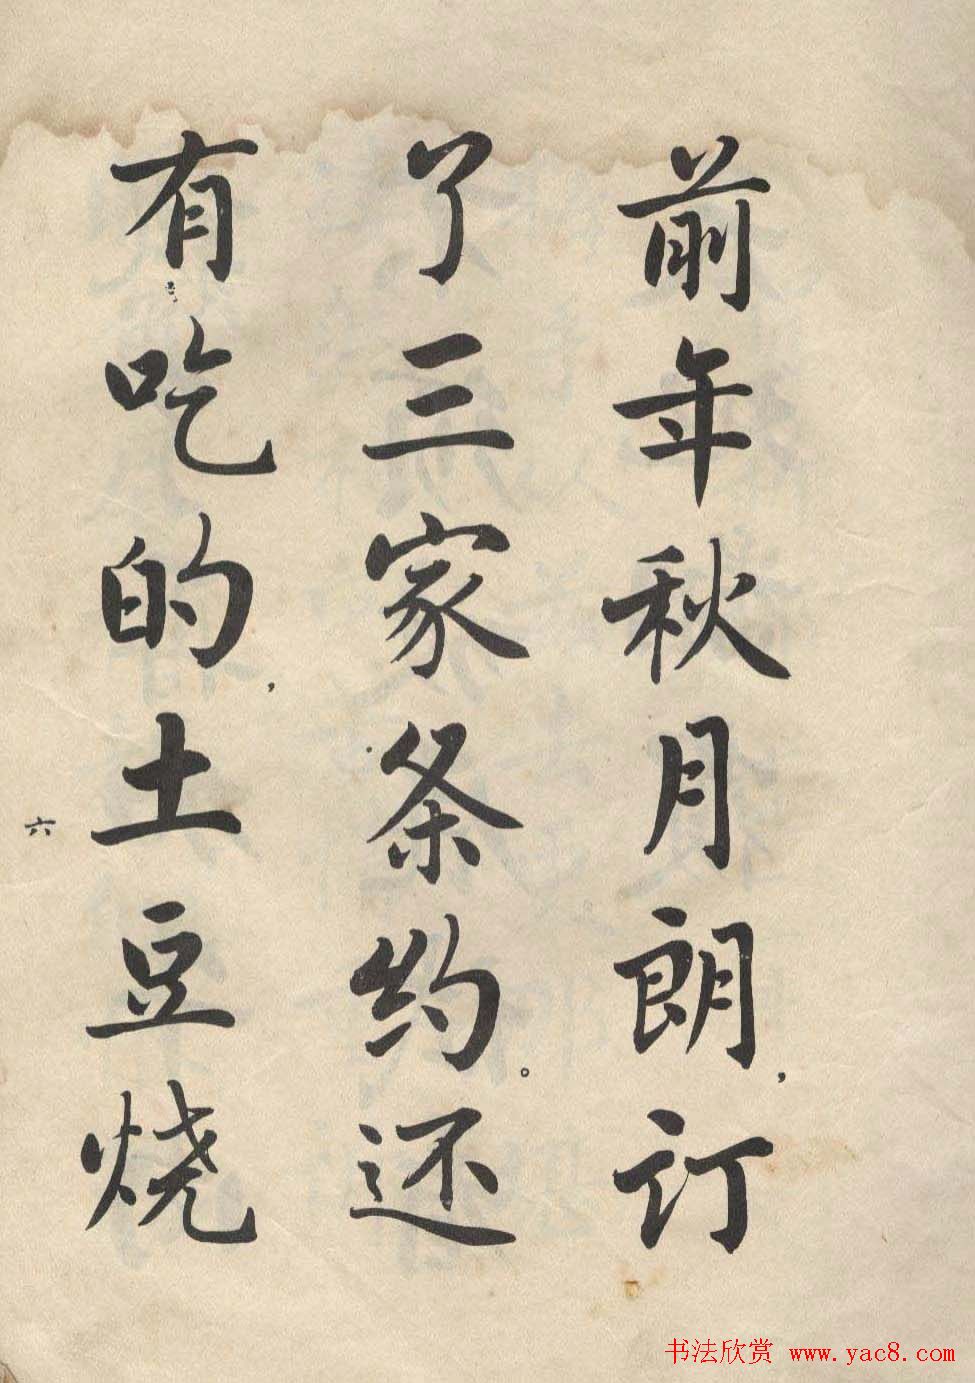 前年秋月朗,订
了三家条约。还
有吃的,土豆烧
六
书法欣赏 www.yac8.com